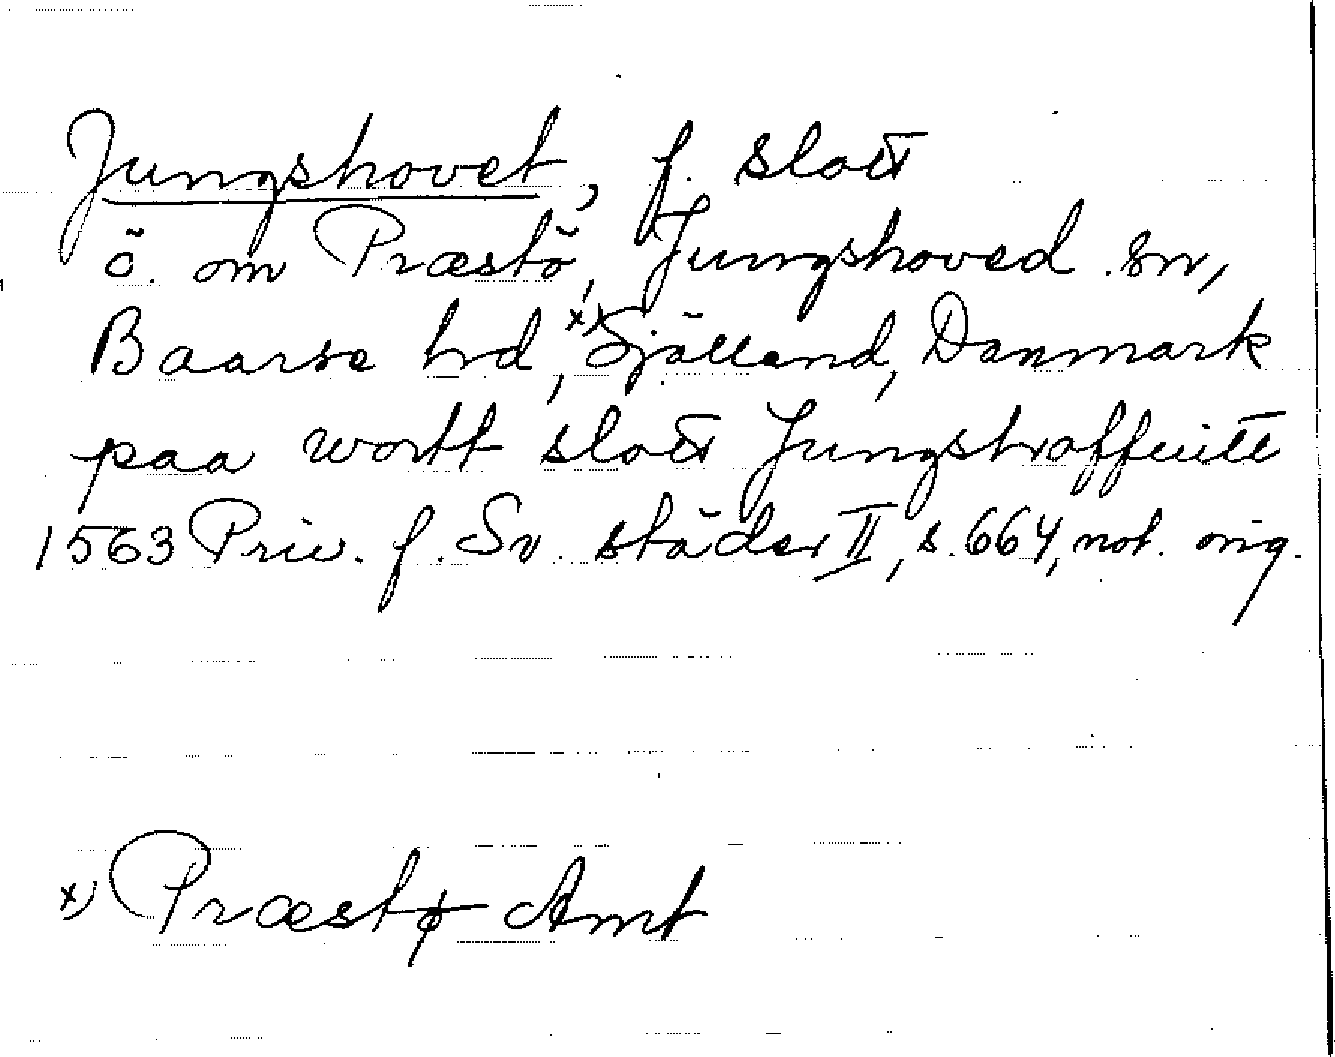 Jungshovet, f. slott
ö. om Præstö, Jungshoved sn,
Baarse hrd, x) Själland, Danmark
paa wortt slott Jungshoffuitt
1563 Priv. f. Sv. städer II, s. 664, not. orig.
x) Præstø Amt